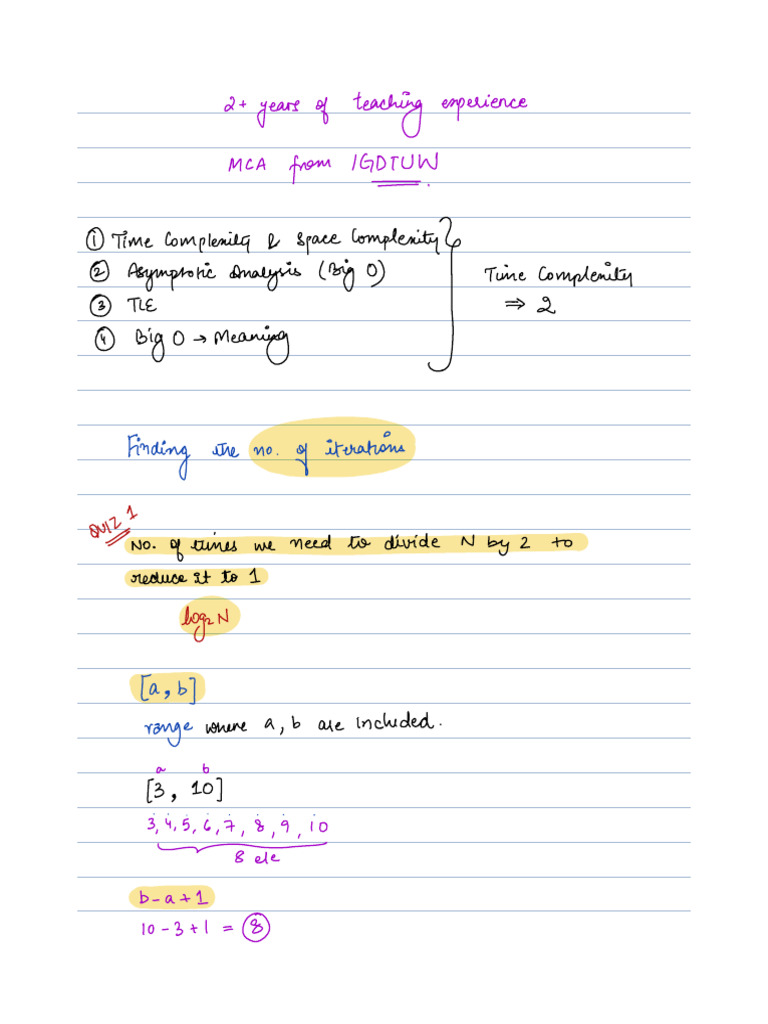 2+ years of teaching experience
MCA from IGDTUW.
① Time Complexity & Space Complexity
② Asymptotic Analysis (Big O)
③ TLE
④ Big O → Meaning
Time Complexity
⇒ 2
Finding the no. of iterations
QUIZ 1
No. of times we need to divide N by 2 to
reduce it to 1
log₂N
[a, b]
range where a, b are included.
a b
[3, 10]
3, 4, 5, 6, 7, 8, 9, 10
8 ele
b-a+1
10-3+1 = 8